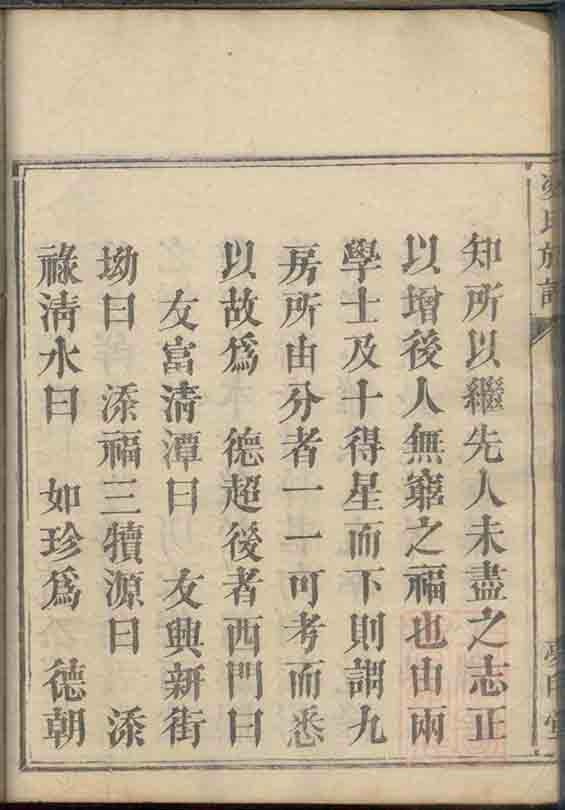 知所以繼先人未盡之志正
以增後人無窮之福也由兩
學士及十得星而下則謂九
房所由分者一一可考而悉
以故爲 德超後者西門曰
友富清潭曰 友興新街
坳曰 添福三犢源曰 添
祿清水曰 如珍爲 德朝